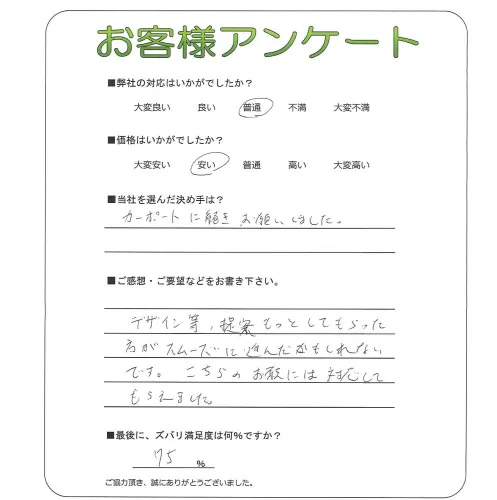 お客様アンケート
■弊社の対応はいかがでしたか?
大変良い 良い 普通 不満 大変不満
■価格はいかがでしたか?
大変安い 安い 普通 高い 大変高い
■当社を選んだ決め手は?
カーポートに続きお願いしました。
■ご感想・ご要望などをお書き下さい。
デザイン等、提案もっとしてもらった
方がスムーズに進んだかもしれない
です。こちらのお願には対応して
もらえました
■最後に、ズバリ満足度は何%ですか?
75 %
ご協力頂き、誠にありがとうございました。